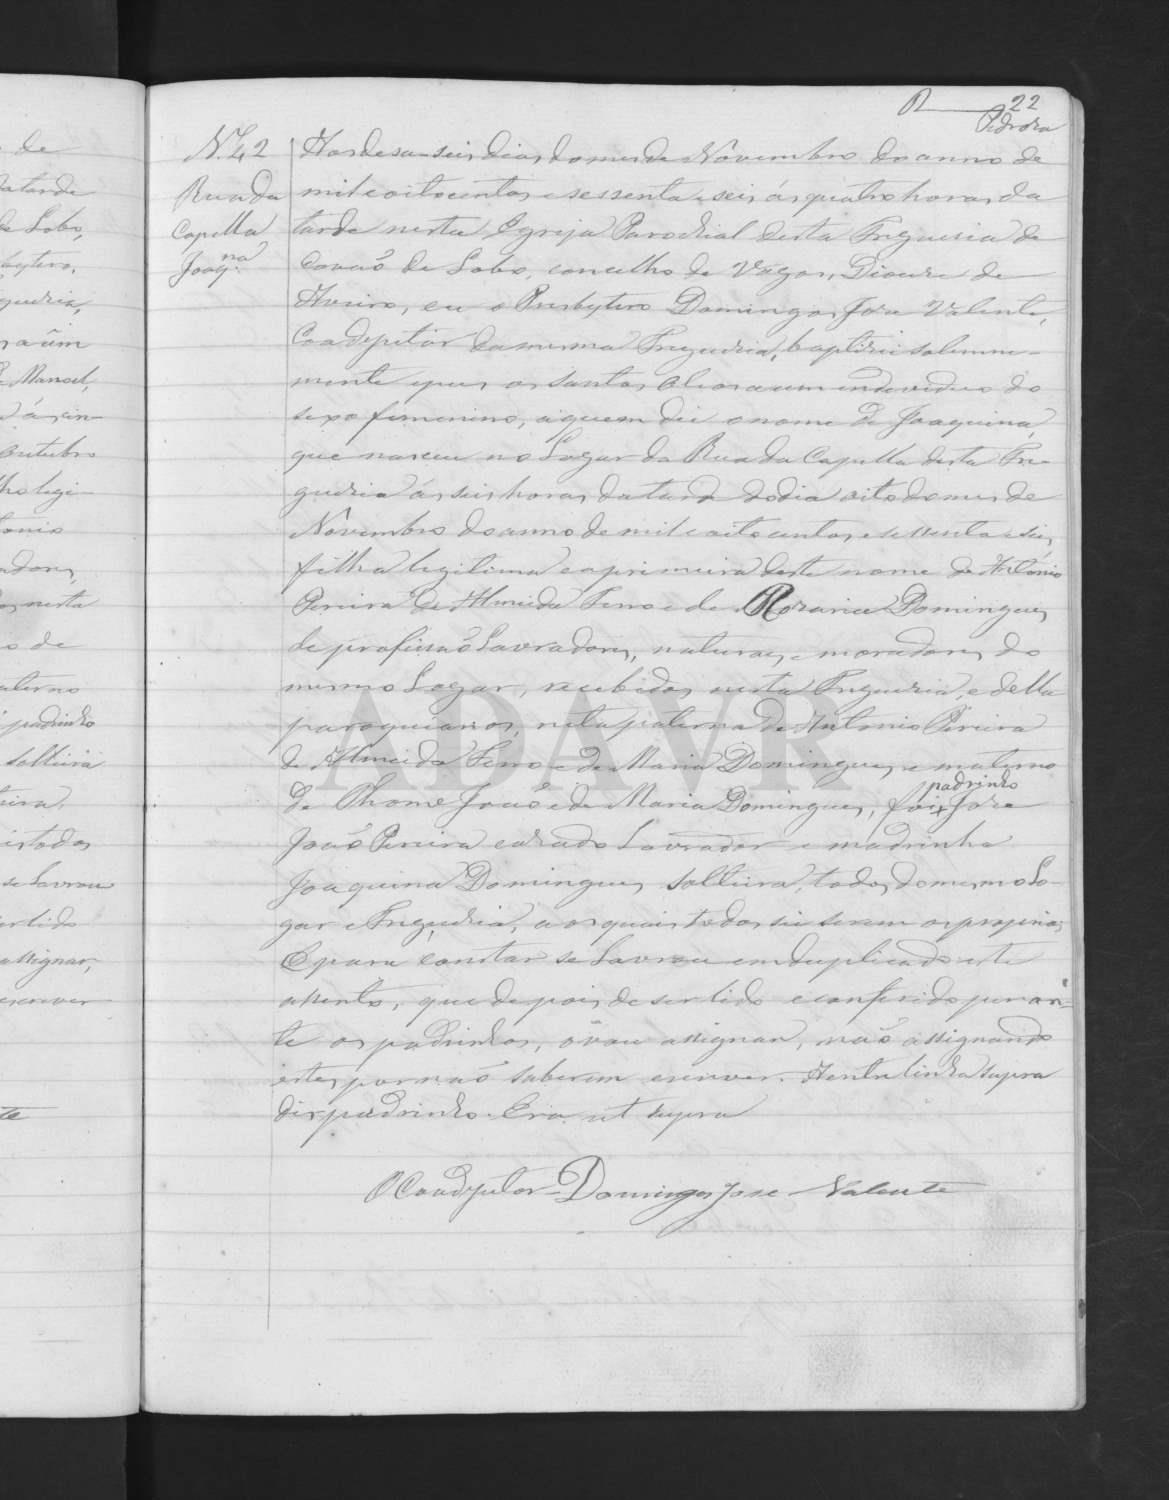 22
Pedroza
N.42
Rua da
Capella
Joaq.na
Aos desa-seis dias do mes de Novembro do anno de
mil e oito centos e sessenta e seis ás quatro horas da
tarde nesta Egreja Parochial desta Freguesia de
Covaõ de Lobo, concelho de Vagos, Diocese de
Aveiro, eu o Presbytero Domingos Jose Valente,
Coadjutor da mesma Freguesia, baptisei solemne-
mente e pus os santos oleos a um individuo do
sexo femenino, a quem dei o nome de Joaquina,
que nasceu no Logar da Rua da Capella desta Fre-
guesia ás seis horas da tarde do dia oito do mes de
Novembro do anno de mil e oito centos e sessenta e seis,
filha legitima e a primeira deste nome de António
Pereira de Almeida Ferro e de Rozaria Domingues,
de profissaõ Lavradores, naturaes e moradores do
mesmo Logar, recebidos nesta Freguesia, e della
paroquianos, neta paterna de Antonio Pereira
de Almeida Ferro e de Maria Domingues, e materno
de Thome Joaõ e de Maria Domingues, foi x Jose
padrinho
Joaõ Pereira casado Lavrador e madrinha
Joaquina Domingues solteira, todos do mesmo Lo-
gar e Freguesia, a os quais todos sei serem os proprios;
E para constar se Lavrou em duplicado este
assento, que depois de ser lido e conferido peran-
te os padrinhos, o vou assignar, naõ assignando
estes por naõ saberem escrever. A entre linha supra
dis padrinho. Era ut supra
O Coadjutor Domingos Jose Valente
ADAVR
de
da tarde
de Lobo,
bytero,
guesia,
a um
e Manoel,
ás cin-
outubro
lho legi-
tonio
adores,
nesta
o de
aterno
padrinho
solteira
eira
todos
se Lavrou
er lido
assignar,
escrever
te